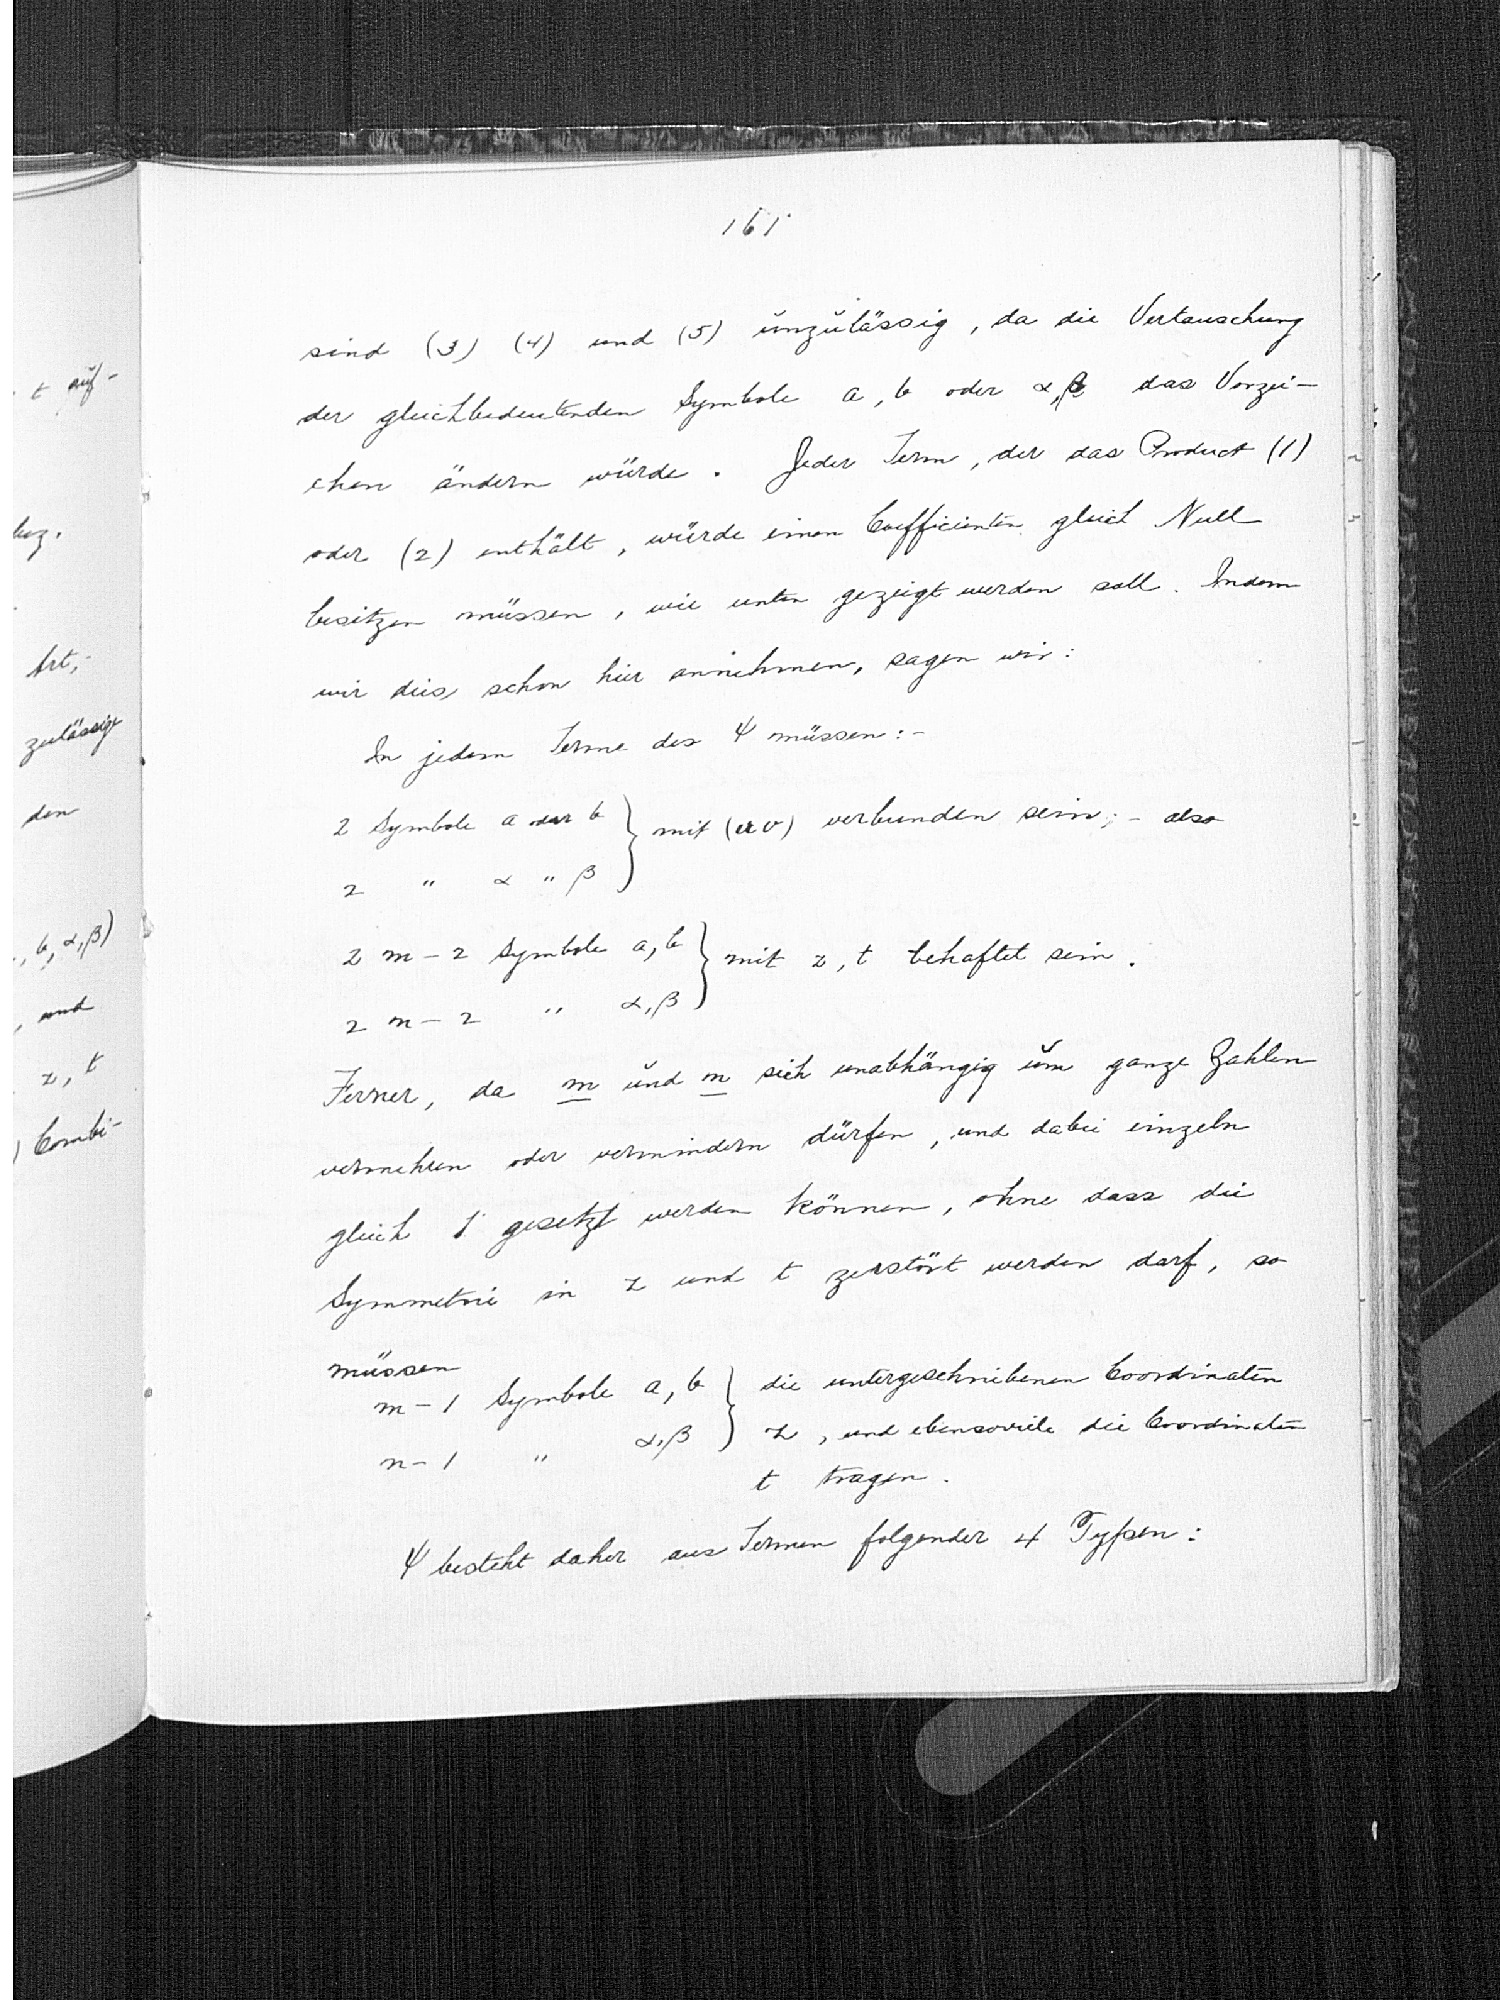 161
sind (3) (4) und (5) unzulässig, da die Vertauschung
der gleichbedeutenden Symbole a, b oder α, β das Vorzei-
chen ändern würde. Jeder Term, der das Product (1)
oder (2) enthält, würde einen Coefficienten gleich Null
besitzen müssen, wie unten gezeigt werden soll. Indem
wir dies schon hier annehmen, sagen wir:
In jedem Terme des ψ müssen:-
2 Symbole a oder b } mit (uv) verbunden sein; - also
2 " α " β
2m-2 Symbole a, b } mit z, t behaftet sein.
2n-2 " α, β
Ferner, da m und n sich unabhängig um ganze Zahlen
vermehren oder vermindern dürfen, und dabei einzeln
gleich 1 gesetzt werden können, ohne dass die
Symmetrie in z und t zerstört werden darf, so
müssen
m-1 Symbole a, b } die untergeschriebenen Coordinaten
n-1 " α, β z, und ebensoviele die Coordinaten
t tragen.
ψ besteht daher aus Termen folgender 4 Typen:
t auf-
bez.
Art,
zulässige
den
, b, α, β)
, und
z, t
) Combi-